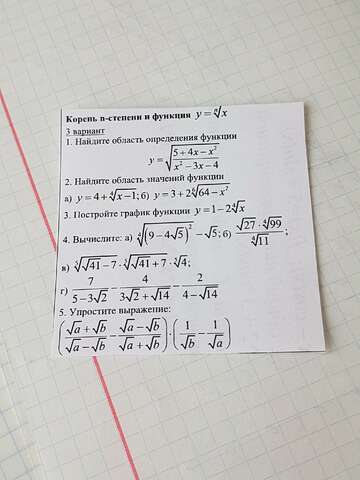 Корень n-степени и функция y = ⁿ√x
3 вариант
1. Найдите область определения функции
y = √((5 + 4x − x²)/(x² − 3x − 4))
2. Найдите область значений функции
а) y = 4 + ⁴√(x − 1); б) y = 3 + 2⁶√(64 − x²)
3. Постройте график функции y = 1 − 2⁴√x
4. Вычислите: а) ⁴√((9 − 4√5)²) − √5; б) (√27 · ⁴√99)/⁴√11;
в) ⁵√(√41 − 7) · ⁵√(√41 + 7) · ⁵√4;
г) 7/(5 − 3√2) − 4/(3√2 + √14) − 2/(4 − √14)
5. Упростите выражение:
((√a + √b)/(√a − √b) − (√a − √b)/(√a + √b)) · (1/√b − 1/√a)